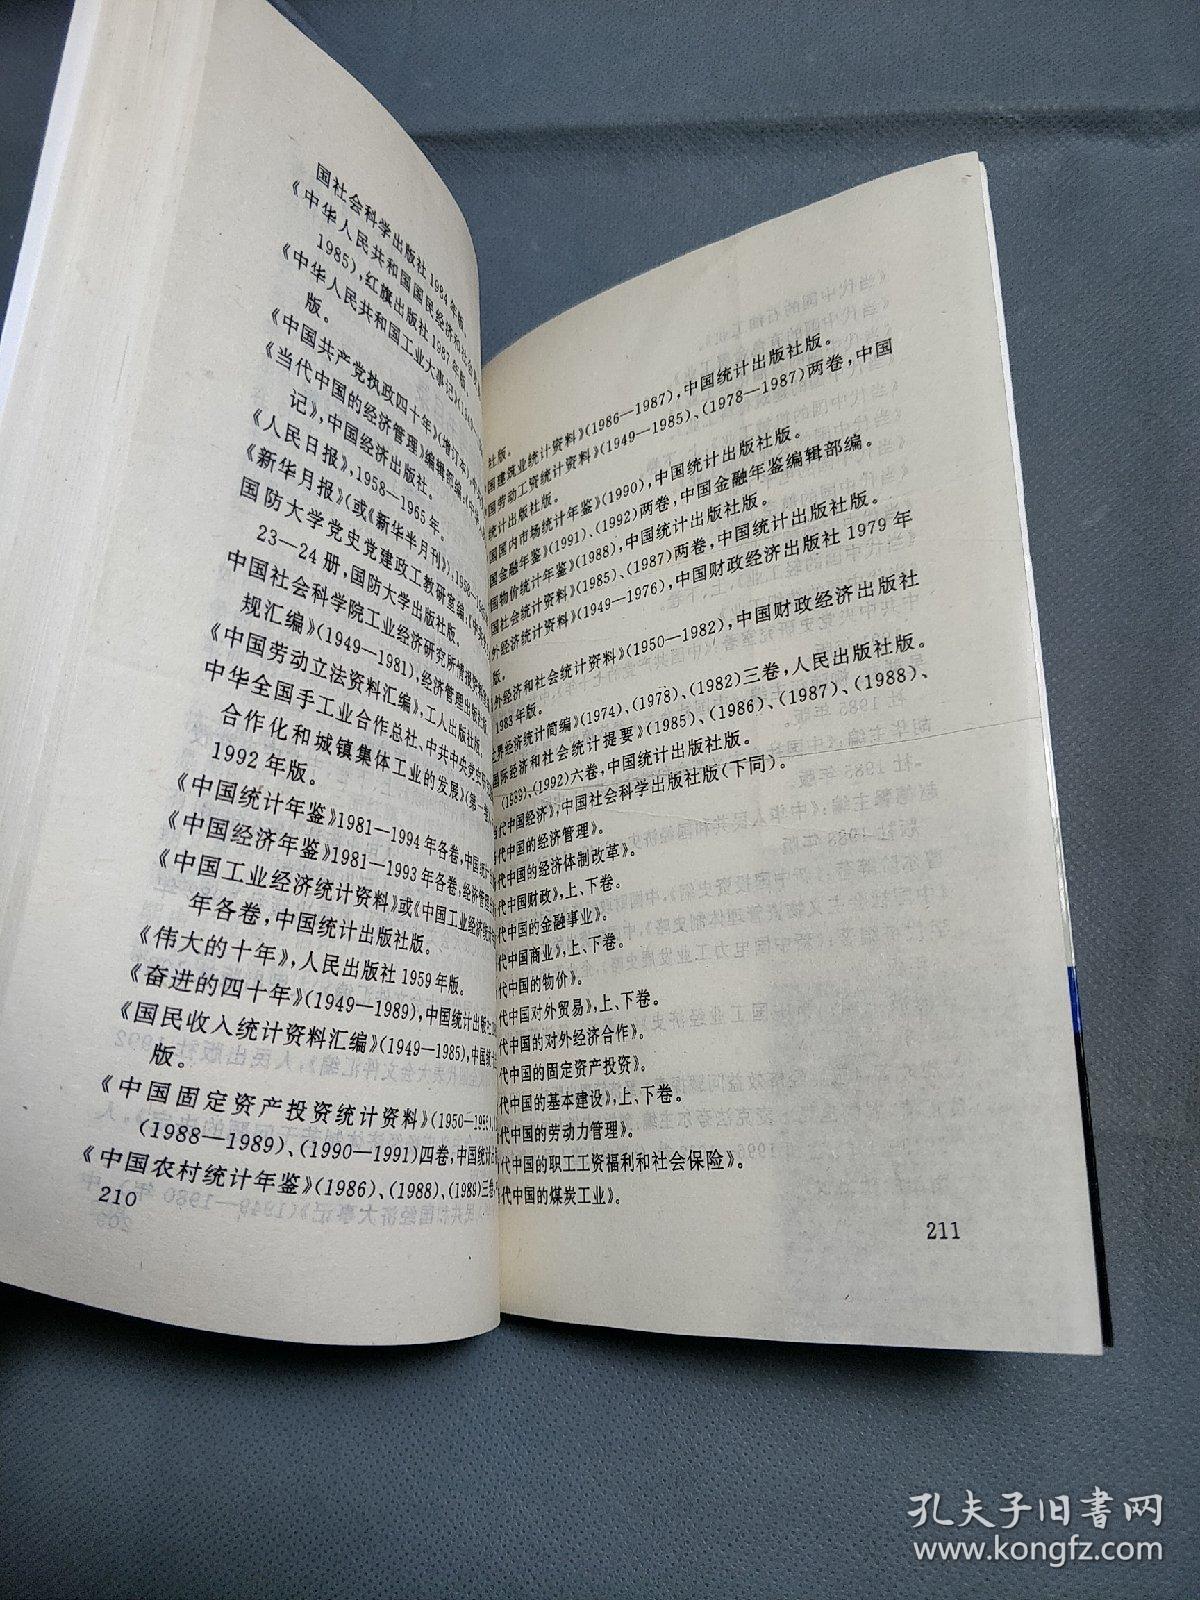 国社会科学出版社1984年版。
《中华人民共和国国民经济和社会
1985),红旗出版社1987年版。
《中华人民共和国工业大事记》(
版。
《中国共产党执政四十年》(增订本),
《当代中国的经济管理》编辑部编:《中
记》,中国经济出版社。
《人民日报》,1958—1965年。
《新华月报》(或《新华半月刊》),1958—
国防大学党史党建政工教研室编:
23—24册,国防大学出版社版。
中国社会科学院工业经济研究所情报资料
规汇编》(1949—1981),经济管理出版社版。
《中国劳动立法资料汇编》,工人出版社版。
中华全国手工业合作总社、中共中央党史研
合作化和城镇集体工业的发展》(第一卷)
1992年版。
《中国统计年鉴》1981—1994年各卷,中国统计
《中国经济年鉴》1981—1993年各卷,经济管理
《中国工业经济统计资料》或《中国工业经济统计
年各卷,中国统计出版社版。
《伟大的十年》,人民出版社1959年版。
《奋进的四十年》(1949—1989),中国统计出版社
《国民收入统计资料汇编》(1949—1985),中国统
版。
《中国固定资产投资统计资料》(1950—1985)、
(1988—1989)、(1990—1991)四卷,中国统计
《中国农村统计年鉴》(1986)、(1988)、(1989)三卷,
210
社版。
国建筑业统计资料》(1986—1987),中国统计出版社版。
国劳动工资统计资料》(1949—1985)、(1978—1987)两卷,中国
统计出版社版。
国国内市场统计年鉴》(1990),中国统计出版社版。
国金融年鉴》(1991)、(1992)两卷,中国金融年鉴编辑部编。
国物价统计年鉴》(1988),中国统计出版社版。
国社会统计资料》(1985)、(1987)两卷,中国统计出版社版。
外经济统计资料》(1949—1976),中国财政经济出版社1979年
版。
外经济和社会统计资料》(1950—1982),中国财政经济出版社
1983年版。
界经济统计简编》(1974)、(1978)、(1982)三卷,人民出版社版。
国际经济和社会统计提要》(1985)、(1986)、(1987)、(1988)、
(1989)、(1992)六卷,中国统计出版社版。
当代中国经济》,中国社会科学出版社版(下同)。
代中国的经济管理》。
代中国的经济体制改革》。
代中国财政》,上、下卷。
代中国的金融事业》。
代中国商业》,上、下卷。
代中国的物价》。
代中国对外贸易》,上、下卷。
代中国的对外经济合作》。
代中国的固定资产投资》。
代中国的基本建设》,上、下卷。
代中国的劳动力管理》。
代中国的职工工资福利和社会保险》。
代中国的煤炭工业》。
211
孔夫子旧书网
www.kongfz.com